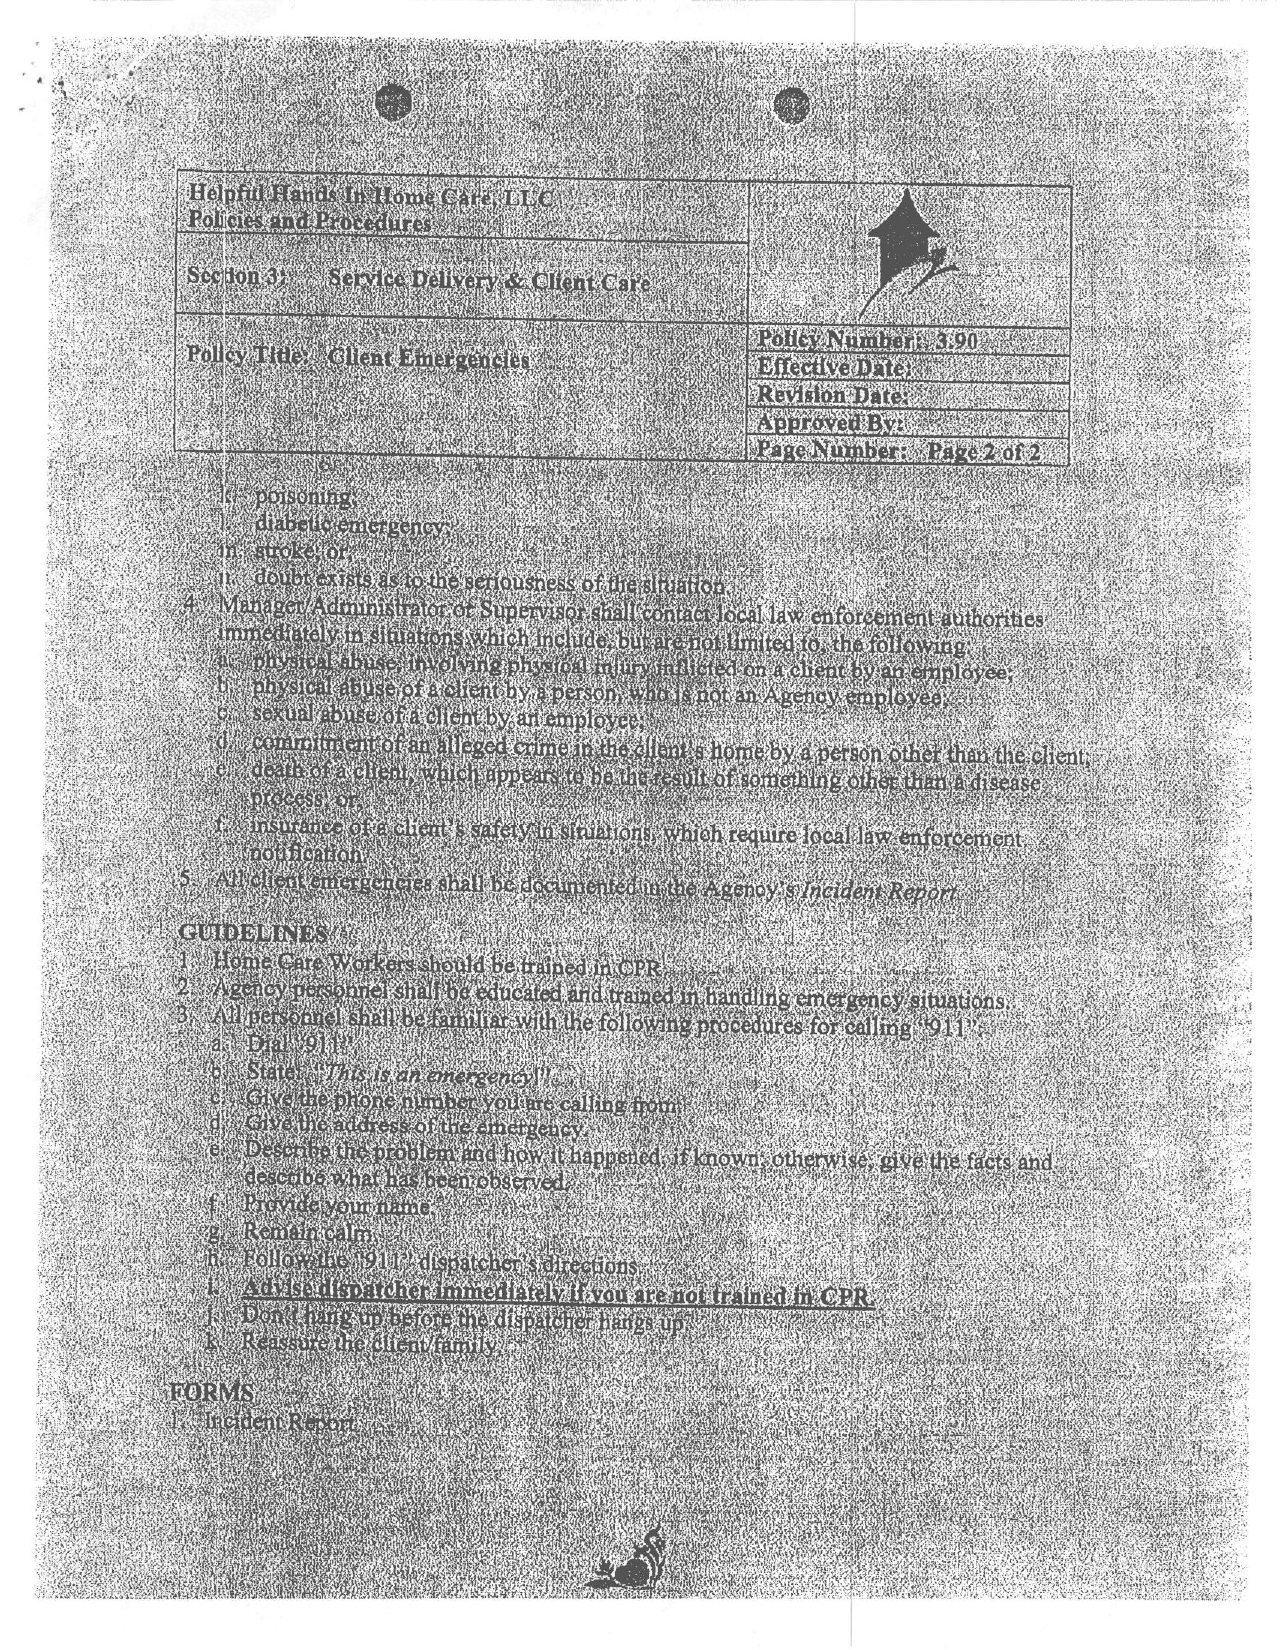 Helpful Hands In-Home Care, LLC
Policies and Procedures
Section 3: Service Delivery & Client Care
Policy Title: Client Emergencies
Policy Number: 3.90
Effective Date:
Revision Date:
Approved By:
Page Number: Page 2 of 2
k. poisoning;
l. diabetic emergency;
m. stroke; or,
n. doubt exists as to the seriousness of the situation.
4. Manager/Administrator or Supervisor shall contact local law enforcement authorities
immediately in situations which include, but are not limited to, the following:
a. physical abuse, involving physical injury inflicted on a client by an employee;
b. physical abuse of a client by a person, who is not an Agency employee;
c. sexual abuse of a client by an employee;
d. commitment of an alleged crime in the client's home by a person other than the client;
e. death of a client, which appears to be the result of something other than a disease
process; or,
f. insurance of a client's safety in situations, which require local law enforcement
notification.
5. All client emergencies shall be documented in the Agency's Incident Report
GUIDELINES
1. Home Care Workers should be trained in CPR.
2. Agency personnel shall be educated and trained in handling emergency situations.
3. All personnel shall be familiar with the following procedures for calling "911":
a. Dial "911"
b. State: "This is an emergency!"
c. Give the phone number you are calling from.
d. Give the address of the emergency.
e. Describe the problem and how it happened, if known; otherwise, give the facts and
describe what has been observed.
f. Provide your name.
g. Remain calm.
h. Follow the "911" dispatcher's directions.
i. Advise dispatcher immediately if you are not trained in CPR.
j. Don't hang up before the dispatcher hangs up.
k. Reassure the client/family.
FORMS
1. Incident Report